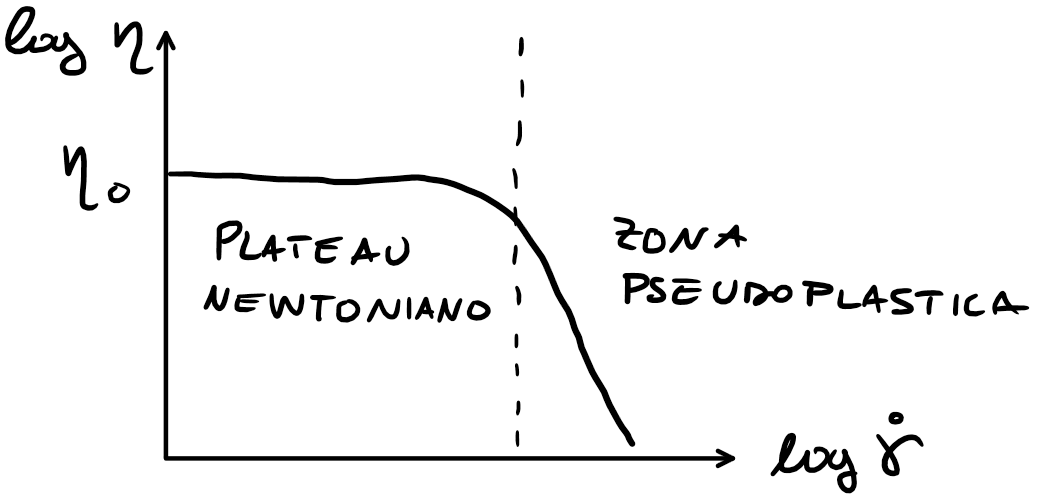 log η
η₀
PLATEAU
NEWTONIANO
ZONA
PSEUDOPLASTICA
log γ̇